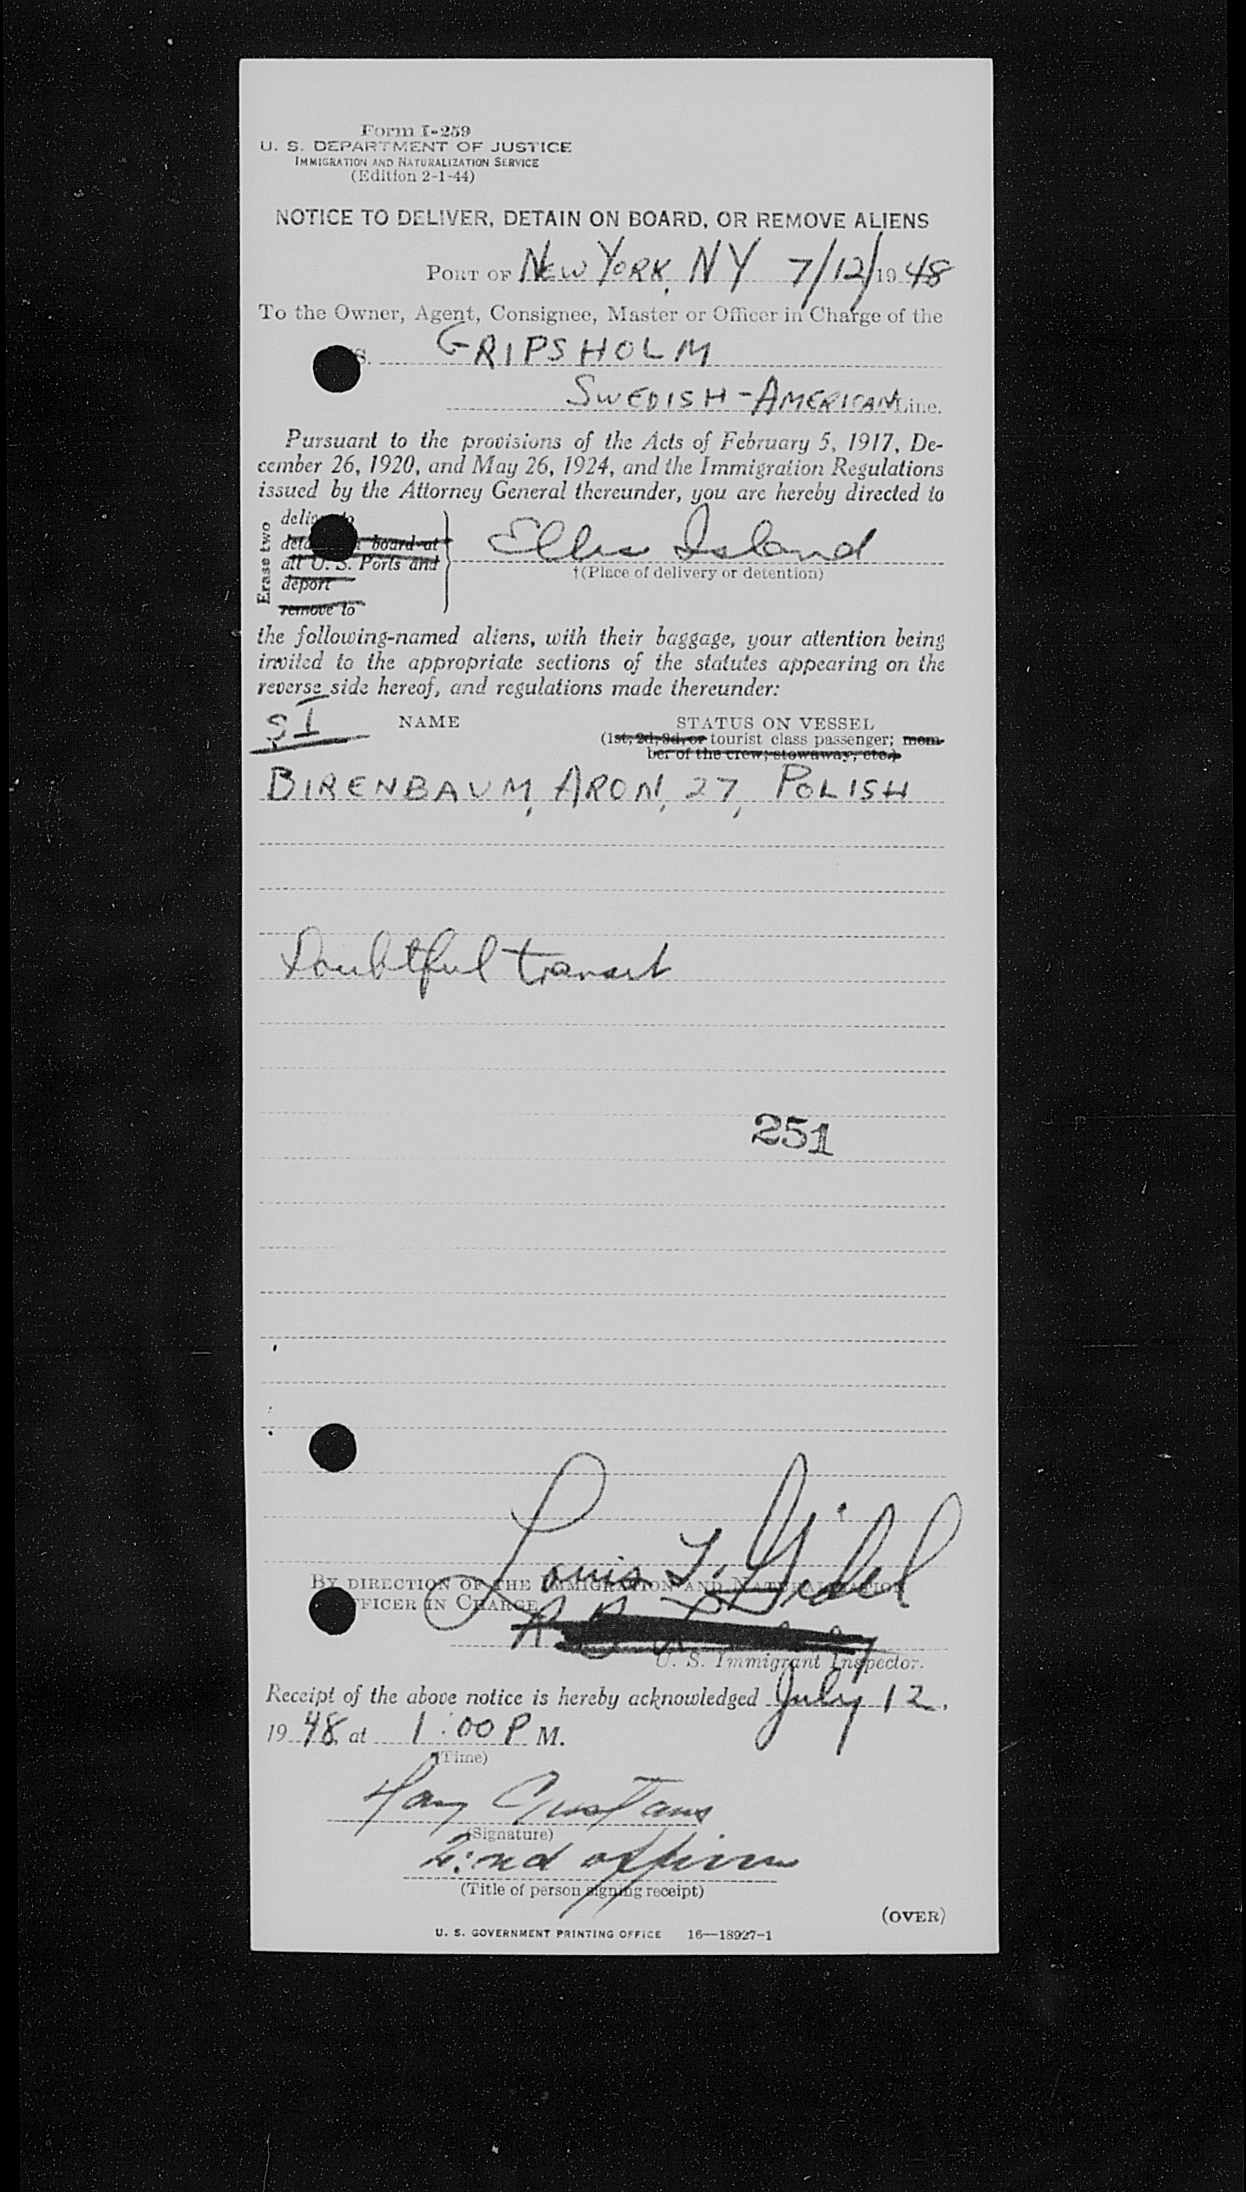 Form I-259
U. S. DEPARTMENT OF JUSTICE
IMMIGRATION AND NATURALIZATION SERVICE
(Edition 2-1-44)
NOTICE TO DELIVER, DETAIN ON BOARD, OR REMOVE ALIENS
PORT OF NEW YORK, NY 7/12/1948
To the Owner, Agent, Consignee, Master or Officer in Charge of the
S. GRIPSHOLM
SWEDISH-AMERICAN Line.
Pursuant to the provisions of the Acts of February 5, 1917, De-
cember 26, 1920, and May 26, 1924, and the Immigration Regulations
issued by the Attorney General thereunder, you are hereby directed to
Erase two
deliver to
detain on board at
all U. S. Ports and
deport
remove to
Ellis Island
†(Place of delivery or detention)
the following-named aliens, with their baggage, your attention being
invited to the appropriate sections of the statutes appearing on the
reverse side hereof, and regulations made thereunder:
SI NAME STATUS ON VESSEL
(1st, 2d, 3d, or tourist class passenger; mem-
ber of the crew; stowaway, etc.)
BIRENBAUM, ARON, 27, POLISH
Doubtful transit
251
Louis T. Gidel
BY DIRECTION OF THE IMMIGRATION AND NATURALIZATION
OFFICER IN CHARGE
U. S. Immigrant Inspector.
Receipt of the above notice is hereby acknowledged July 12,
1948, at 1:00 P M.
(Time)
(Signature)
2:nd
(Title of person signing receipt)
(OVER)
U. S. GOVERNMENT PRINTING OFFICE 16—18927-1